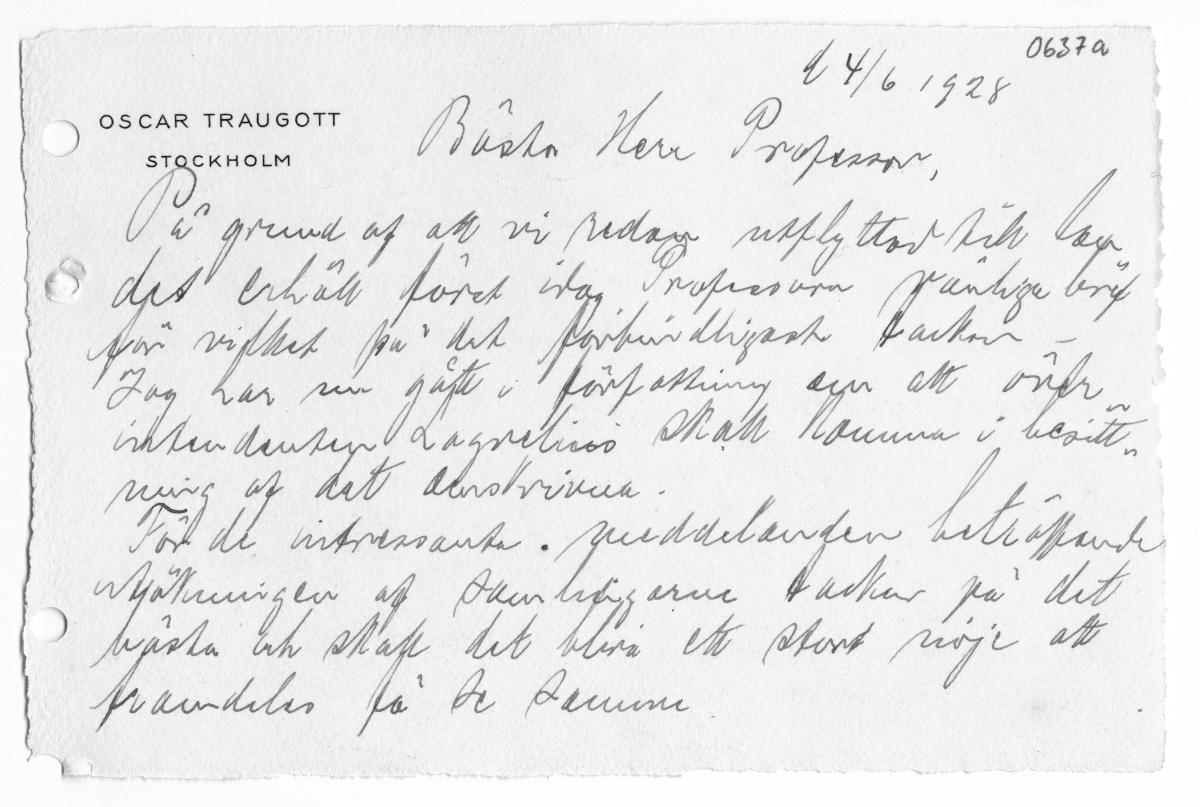 0637a
d 4/6 1928
OSCAR TRAUGOTT
STOCKHOLM
Bästa Herr Professor,
På grund af att vi redan utflyttad till lan
det erhöll först idag Professorn vänliga bref
för vilket på det förbindligaste tackar –
Jag har nu gått i författning om att öfver
intendenten Lagrelius skall komma i besitt„
ning af det omskrivna.
För de intressanta meddelanden beträffande
utökningen af samlingarne tackar på det
bästa och skall det bliva ett stort nöje att
framdeles få se samma